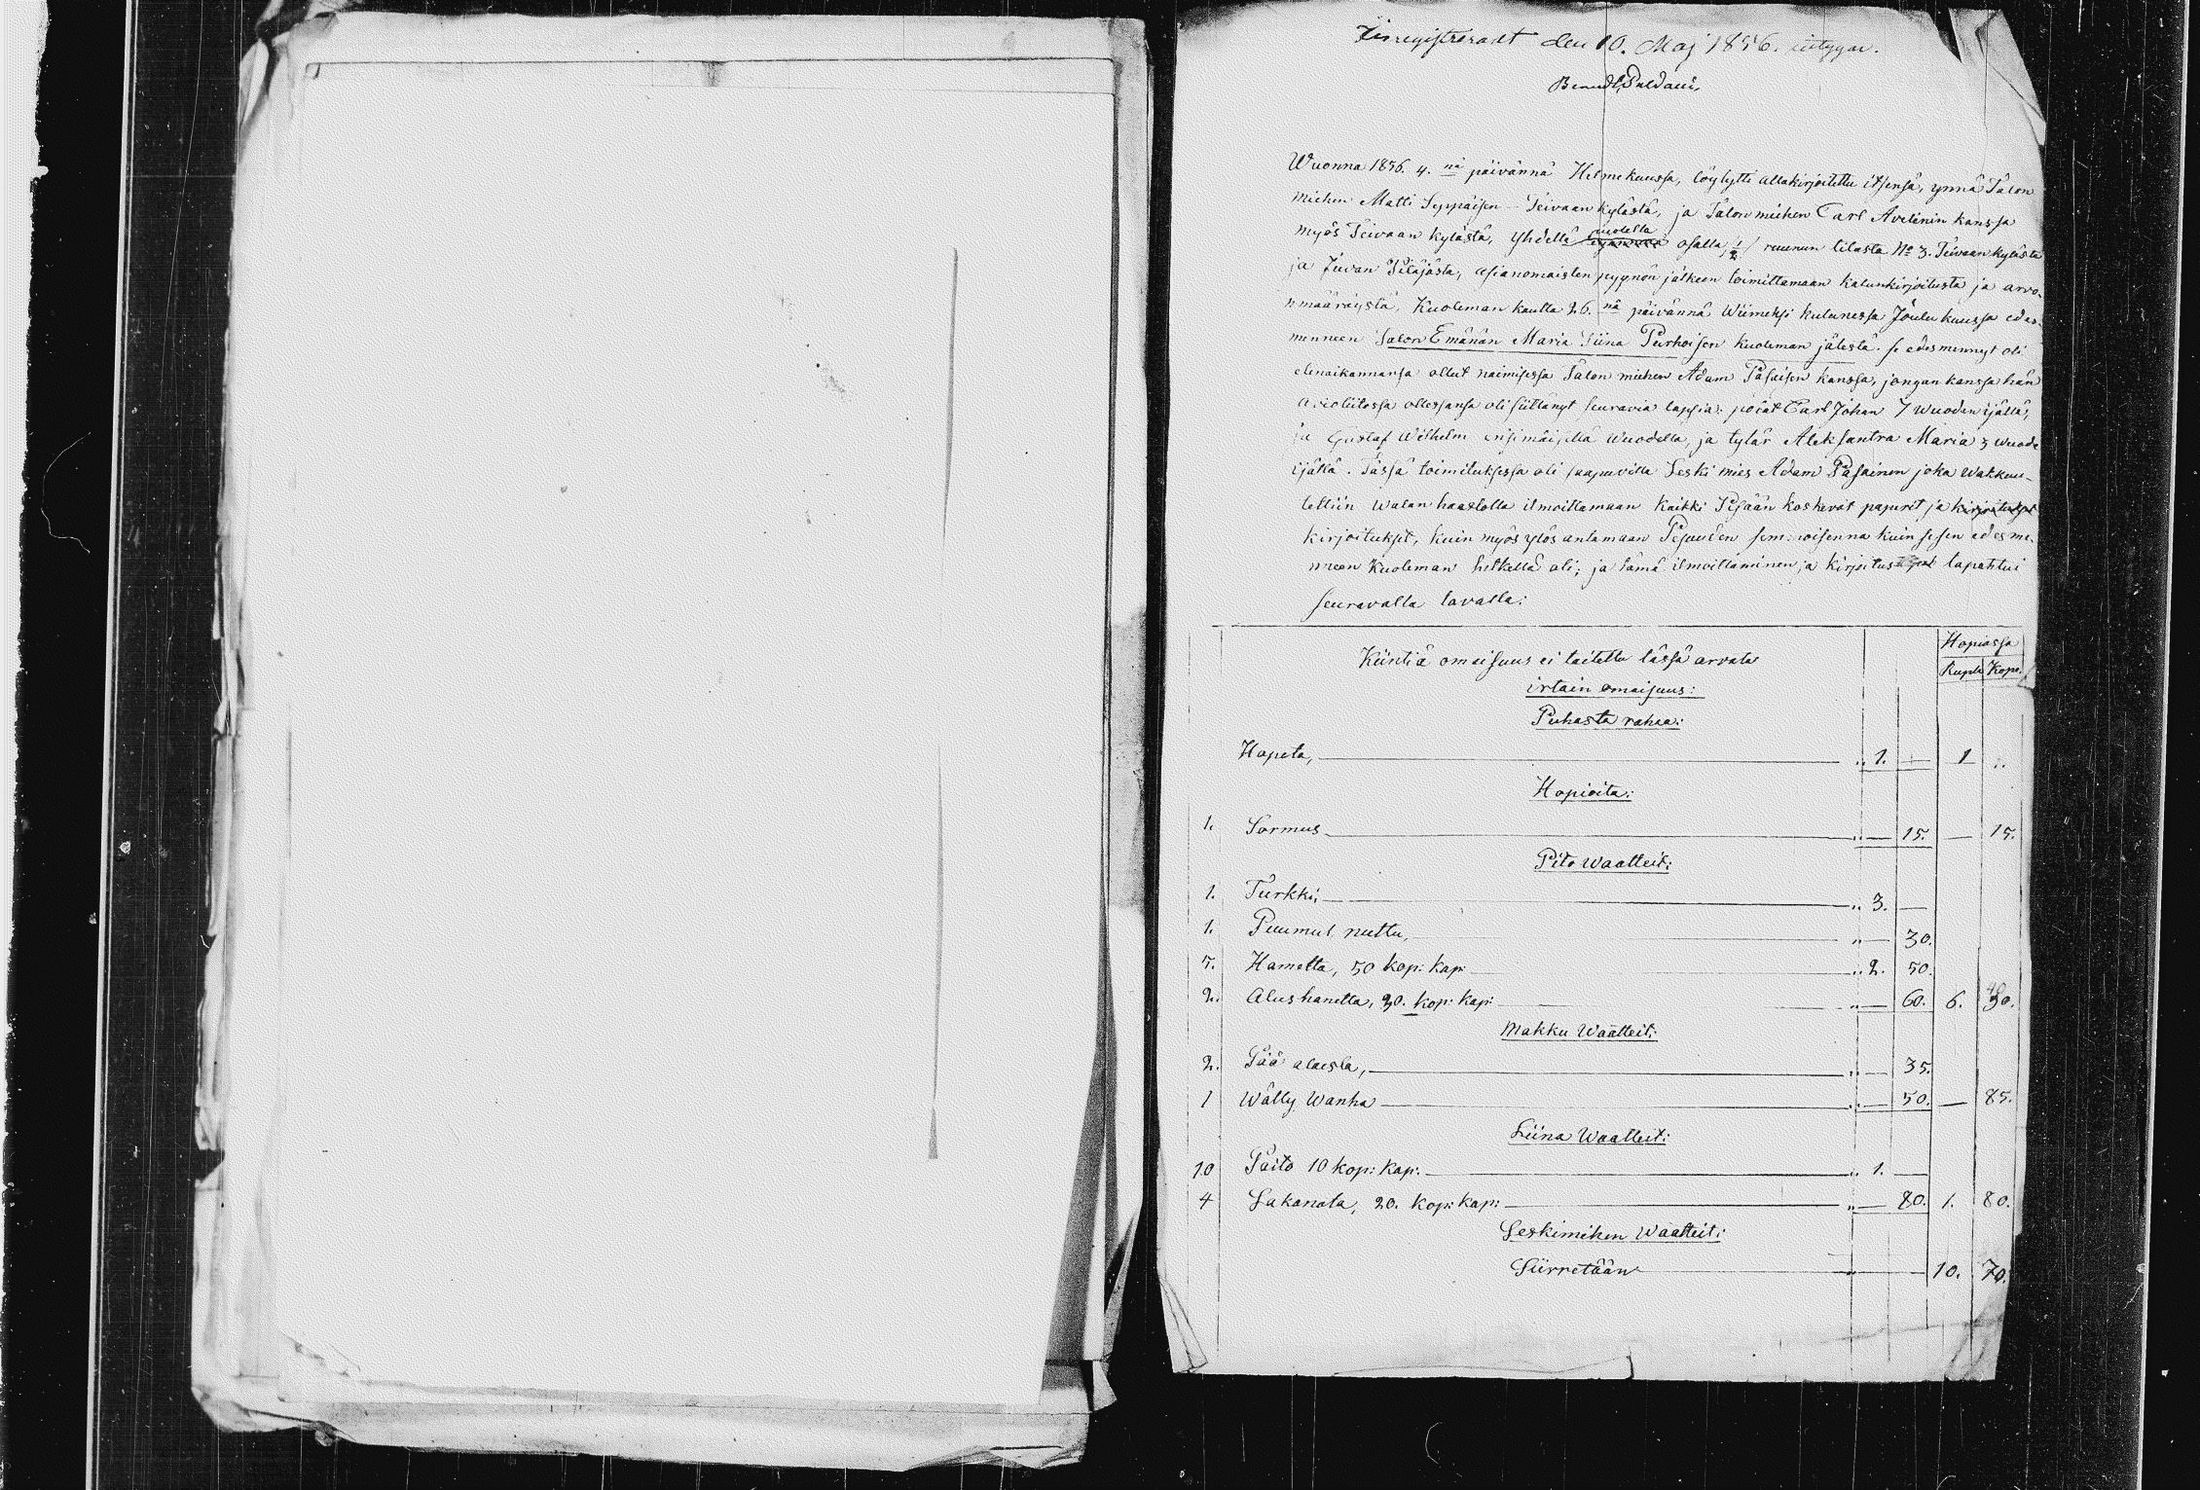 Inregistreradt den 10. Maj 1856. intygar.
Wuonna 1856. 4.nä päivännä Helmekuussa, löylytti allakirjoitettu itsensä, ynnä Talon
miehen Matti Seppäisen Teivaan kylästä, ja Talon miehen Carl Avelinin kanssa
myös Teivaan kylästä, Yhdellä puolella osalla, 1/2 / ruunun tilasta No 3. Teivaan kylästä
ja Juvan Pitäjästä, asianomaisten pyynön jälkeen toimittamaan kalunkirjoitusta ja arvo-
nmääräystä, Kuoleman kautta 26.nä päivännä Wiimeksi kulunessa Joulu kuussa edes-
menneen Talon Emänän Maria Stina Purhoisen kuoleman jälestä. se edesmennyt oli
elinaikannansa ollut naimisessa Talon miehen Adam Pasaisen kanssa, jongan kanssa hän
avioliitossa ollessansa oli siittänyt seuravia lapsia: poiat Carl Johan 7 wuoden ijällä,
ja Gustaf Wilhelm ensimäisellä wuodella, ja tytär Aleksantra Maria 3 wuode
ijällä. Tässä toimituksessa oli saapuvilla Leski mies Adam Pasainen joka Wakkuu-
tettiin walan haastolla ilmoittamaan kaikki Pesään koskevat paperit ja kirjoitukset
kirjoitukset, kuin myös ylös antamaan Pesuuden semmoisenna kuin se sen edesme-
neen Kuoleman hetkellä oli; ja tämä ilmoittaminen ja kirjoitus tapahtui
seuravalla tavalla:
Hopiassa
Kiintiä omaisuus ei taitettu tässä arvata Rupla Kope.
irtain omaisuus:
Puhasta rahaa:
Hopeta, „ 1. — 1 „
Hopioita:
1. Sormus „ — 15. — 15.
Pito Waatteit:
1. Turkki, „ 3. —
1. Puumul nuttu, „ — 30.
5. Hametta, 50 kop: kap: „ 2. 50.
2. Alushametta, 30. kop: kap: „ — 60. 6. 40.
Makku Waatteit:
2. Pää alaista, „ — 35.
1 Wälly Wanha „ — 50. — 85.
Liina Waatteit:
10 Paito 10 kop: kap. „ 1. —
4 Lakanata, 20. kop: kap: „ — 80. 1. 80.
Leskimihen Waatteit:
Siirretään 10. 70.